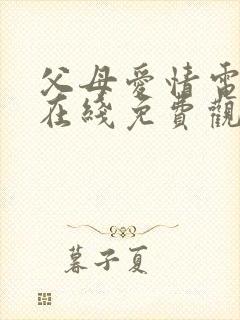 父母愛情電
在綫免費觀
暮子夏